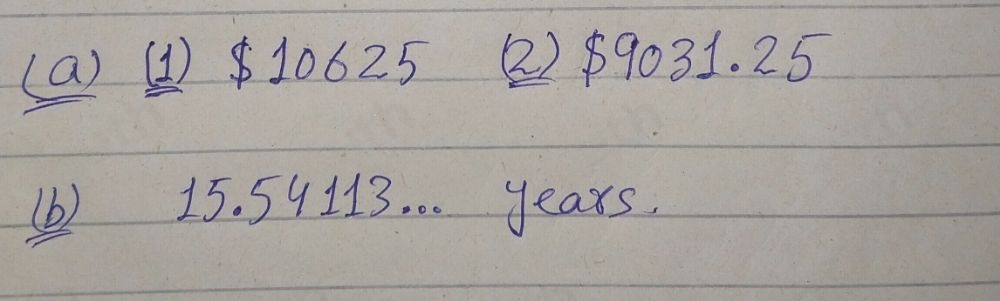 (a) (1) $10625 (2) $9031.25
(b) 15.54113... years.